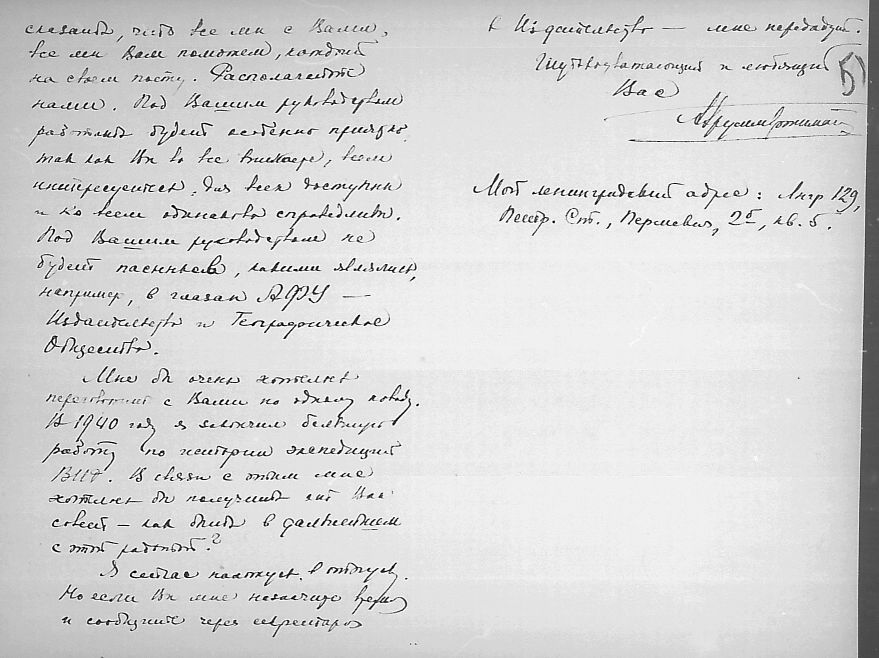 сказать, что все мы с Вами,
все мы Вам поможем, каждый
на своем посту. Располагайте
нами. Под Вашим руководством
работать будет особенно приятно,
так как Вы во все вникаете, всем
интересуетесь, для всех доступны
и ко всем одинаково справедливы.
Под Вашим руководством не
будет пасынков, какими являлись,
например, в глазах АФУ —
Издательство и Географическое
Общество.
Мне бы очень хотелось
переговорить с Вами по одному поводу.
В 1940 году я закончил большую
работу по истории экспедиций
В связи с этим мне
хотелось бы получить от Вас
совет — как быть в дальнейшем
с этой работой?
Я сейчас нахожусь в отпуску.
Но если Вы мне назначите время
и сообщите через секретаря
в Издательство — мне передадут.
Глубокоуважающий и любящий
Вас
5)
Мой ленинградский адрес: Лнгр 129,
Петр. Ст., 2б, кв. 6.